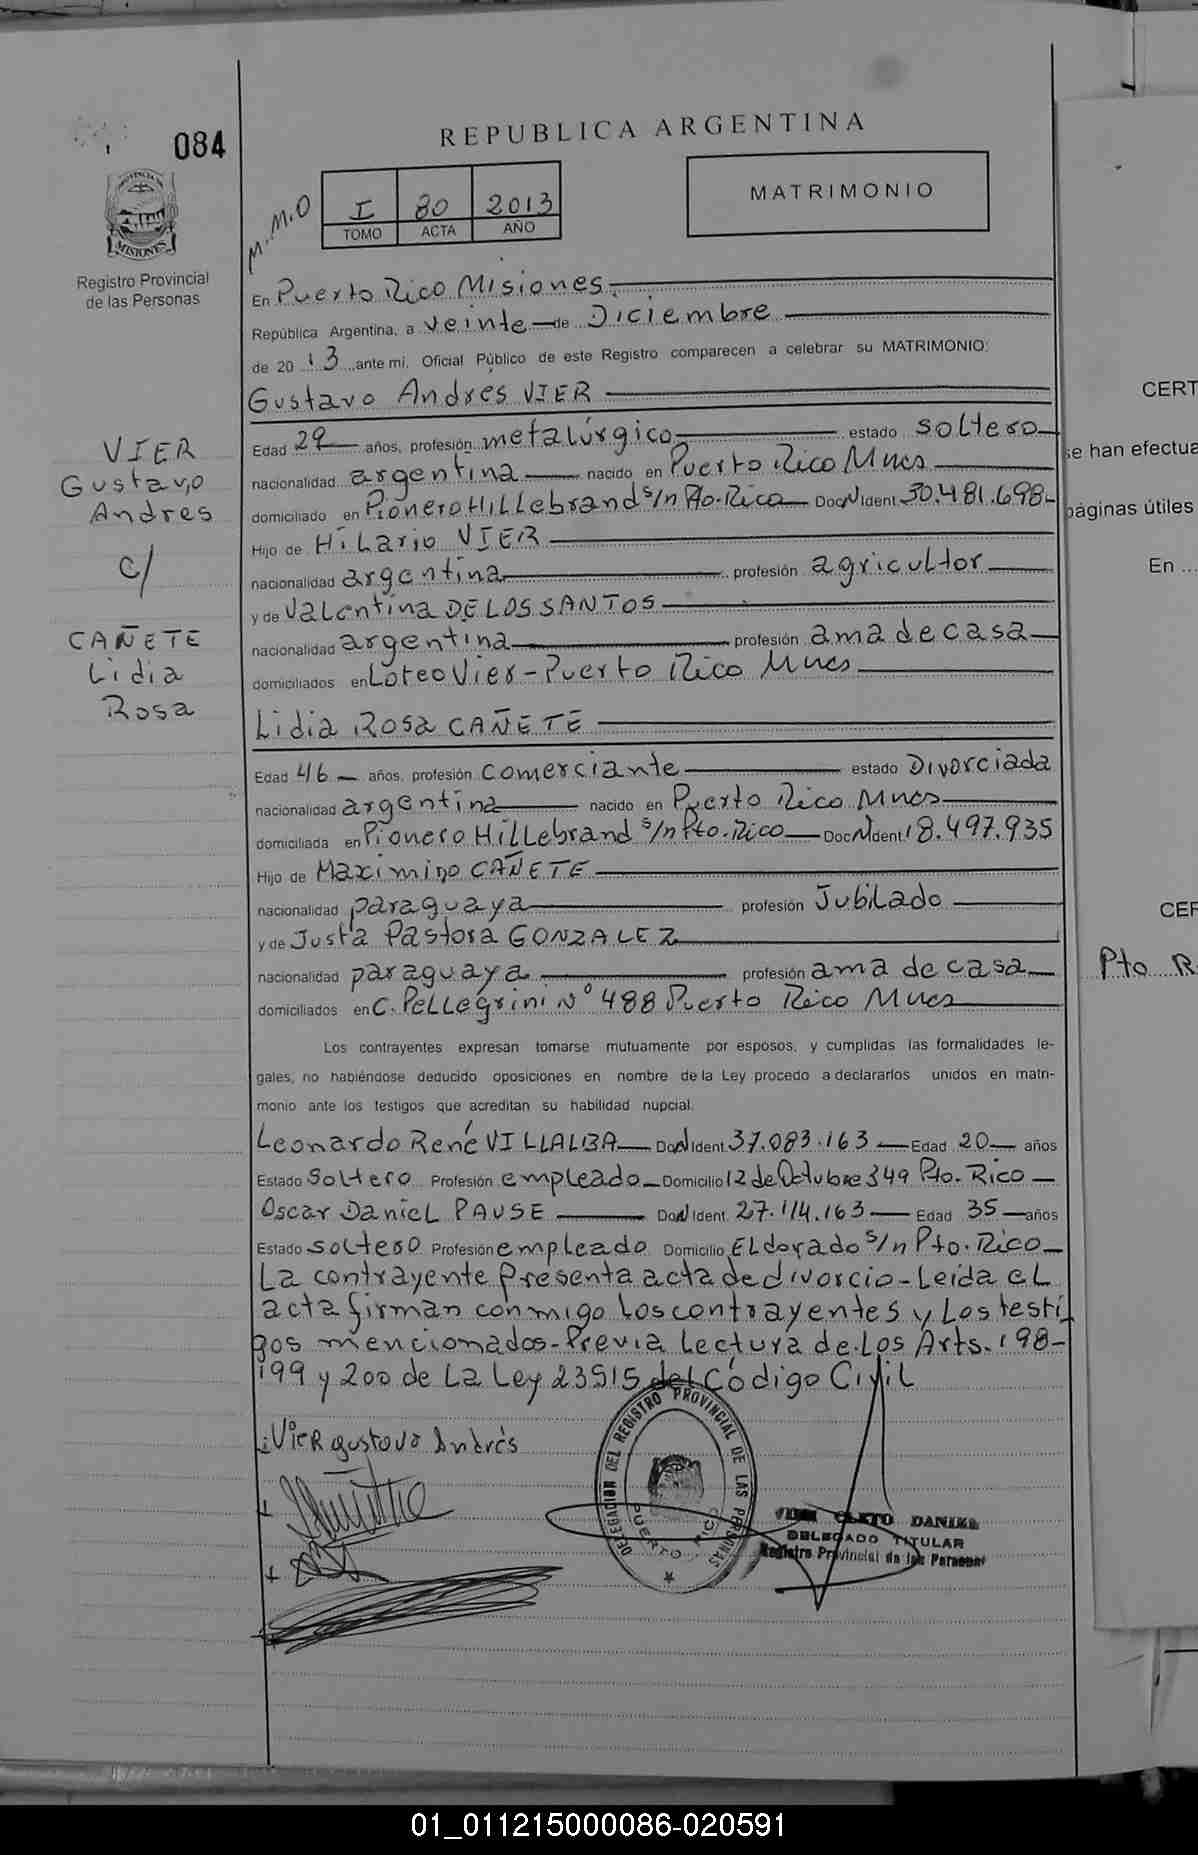 084
REPUBLICA ARGENTINA
PROVINCIA DE
MISIONES
Registro Provincial
de las Personas
M.M.O
I 80 2013
TOMO ACTA AÑO
MATRIMONIO
En Puerto Rico Misiones.
República Argentina, a veinte de Diciembre
de 2013 ante mí, Oficial Público de este Registro comparecen a celebrar su MATRIMONIO:
Gustavo Andres VIER
VIER
Gustavo
Andres
c/
CAÑETE
Lidia
Rosa
Edad 29 años, profesión metalúrgico estado soltero
nacionalidad argentina nacido en Puerto Rico Mnes
domiciliado en Pionero Hillebrand s/n Pto. Rico Doc N Ident. 30.481.698
Hijo de Hilario VIER
nacionalidad argentina profesión agricultor
y de Valentina DE LOS SANTOS
nacionalidad argentina profesión ama de casa
domiciliados en Loteo Vier - Puerto Rico Mnes
Lidia Rosa CAÑETE
Edad 46 años, profesión comerciante estado Divorciada
nacionalidad argentina nacido en Puerto Rico Mnes
domiciliada en Pionero Hillebrand s/n Pto. Rico Doc N Ident. 18.497.935
Hijo de Maximino CAÑETE
nacionalidad paraguaya profesión Jubilado
y de Justa Pastora GONZALEZ
nacionalidad paraguaya profesión ama de casa
domiciliados en C. Pellegrini N° 488 Puerto Rico Mnes
Los contrayentes expresan tomarse mutuamente por esposos, y cumplidas las formalidades le-
gales, no habiéndose deducido oposiciones en nombre de la Ley procedo a declararlos unidos en matri-
monio ante los testigos que acreditan su habilidad nupcial.
Leonardo René VILLALBA Doc N Ident. 37.083.163 Edad 20 años
Estado soltero Profesión empleado Domicilio 12 de Octubre 349 Pto. Rico
Oscar Daniel PAUSE Doc N Ident. 27.114.163 Edad 35 años
Estado soltero Profesión empleado Domicilio Eldorado s/n Pto. Rico
La contrayente presenta acta de divorcio - Leida el
acta firman conmigo los contrayentes y los testi
gos mencionados - Previa lectura de los Arts. 198-
199 y 200 de La Ley 23515 del Código Civil
Vier gustavo Andrés
DELEGACION DEL REGISTRO PROVINCIAL DE LAS PERSONAS
PUERTO RICO
VIER CLETO DANIEL
DELEGADO TITULAR
Registro Provincial de las Personas
CERT
se han efectua
páginas útiles
En ...
CER
Pto R
01_011215000086-020591